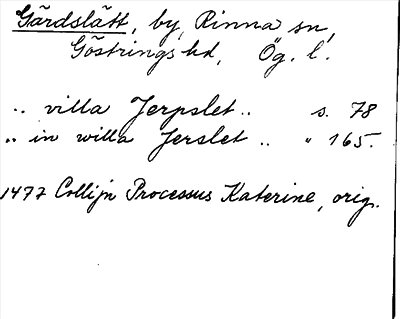 Gärdslätt, by, Rinna sn,
Göstrings hd, Ög. l.
.. villa Jerpslet .. s. 78
.. in willa Jerslet .. " 165.
1477 Collijn Processus Katerine, orig.